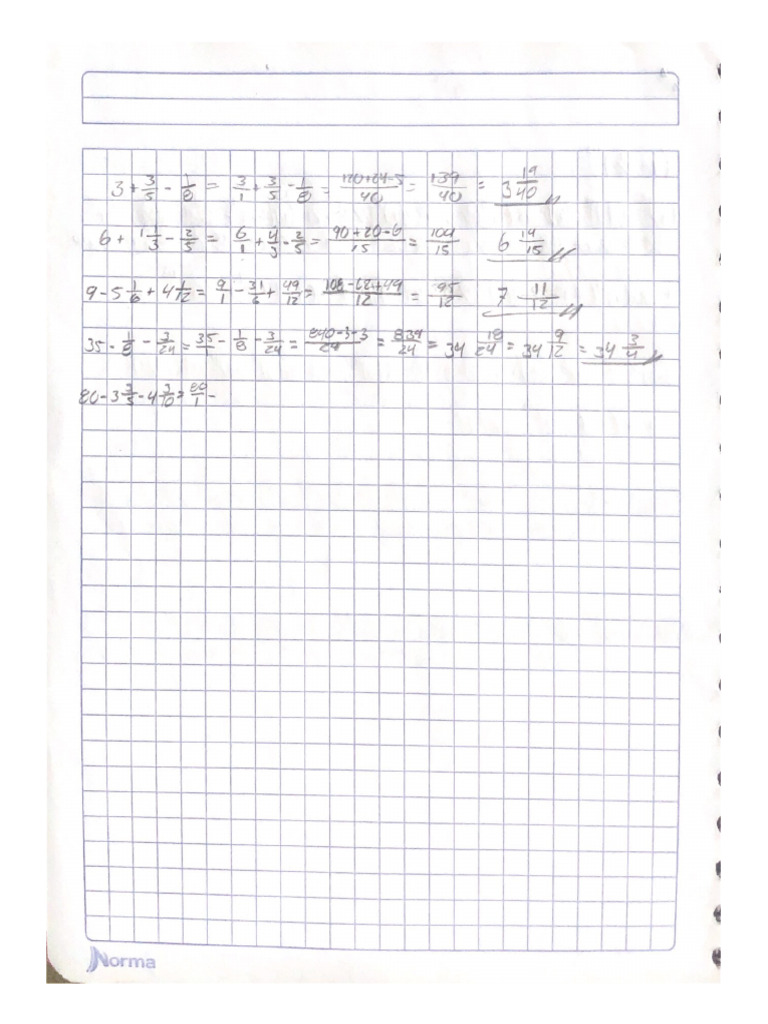 3 + 3/5 - 1/8 = 3/1 + 3/5 - 1/8 = 120+24-5/40 = 139/40 = 3 19/40
6 + 1 1/3 - 2/5 = 6/1 + 4/3 - 2/5 = 90+20-6/15 = 104/15 6 14/15
9 - 5 1/6 + 4 1/12 = 9/1 - 31/6 + 49/12 = 108-62+49/12 = 95/12 7 11/12
35 - 1/8 - 3/24 = 35/1 - 1/8 - 3/24 = 840-3-3/24 = 834/24 = 34 18/24 = 34 9/12 = 34 3/4
80 - 3 3/5 - 4 3/10 = 80/1 -
Norma